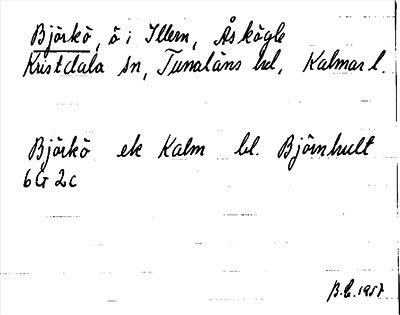 Björkö, ö i Illern, Åskögle
Kristdala sn, Tunaläns hd, Kalmar l.
Björkö ek Kalm bl. Björnhult
6G 2c
B.E. 1957